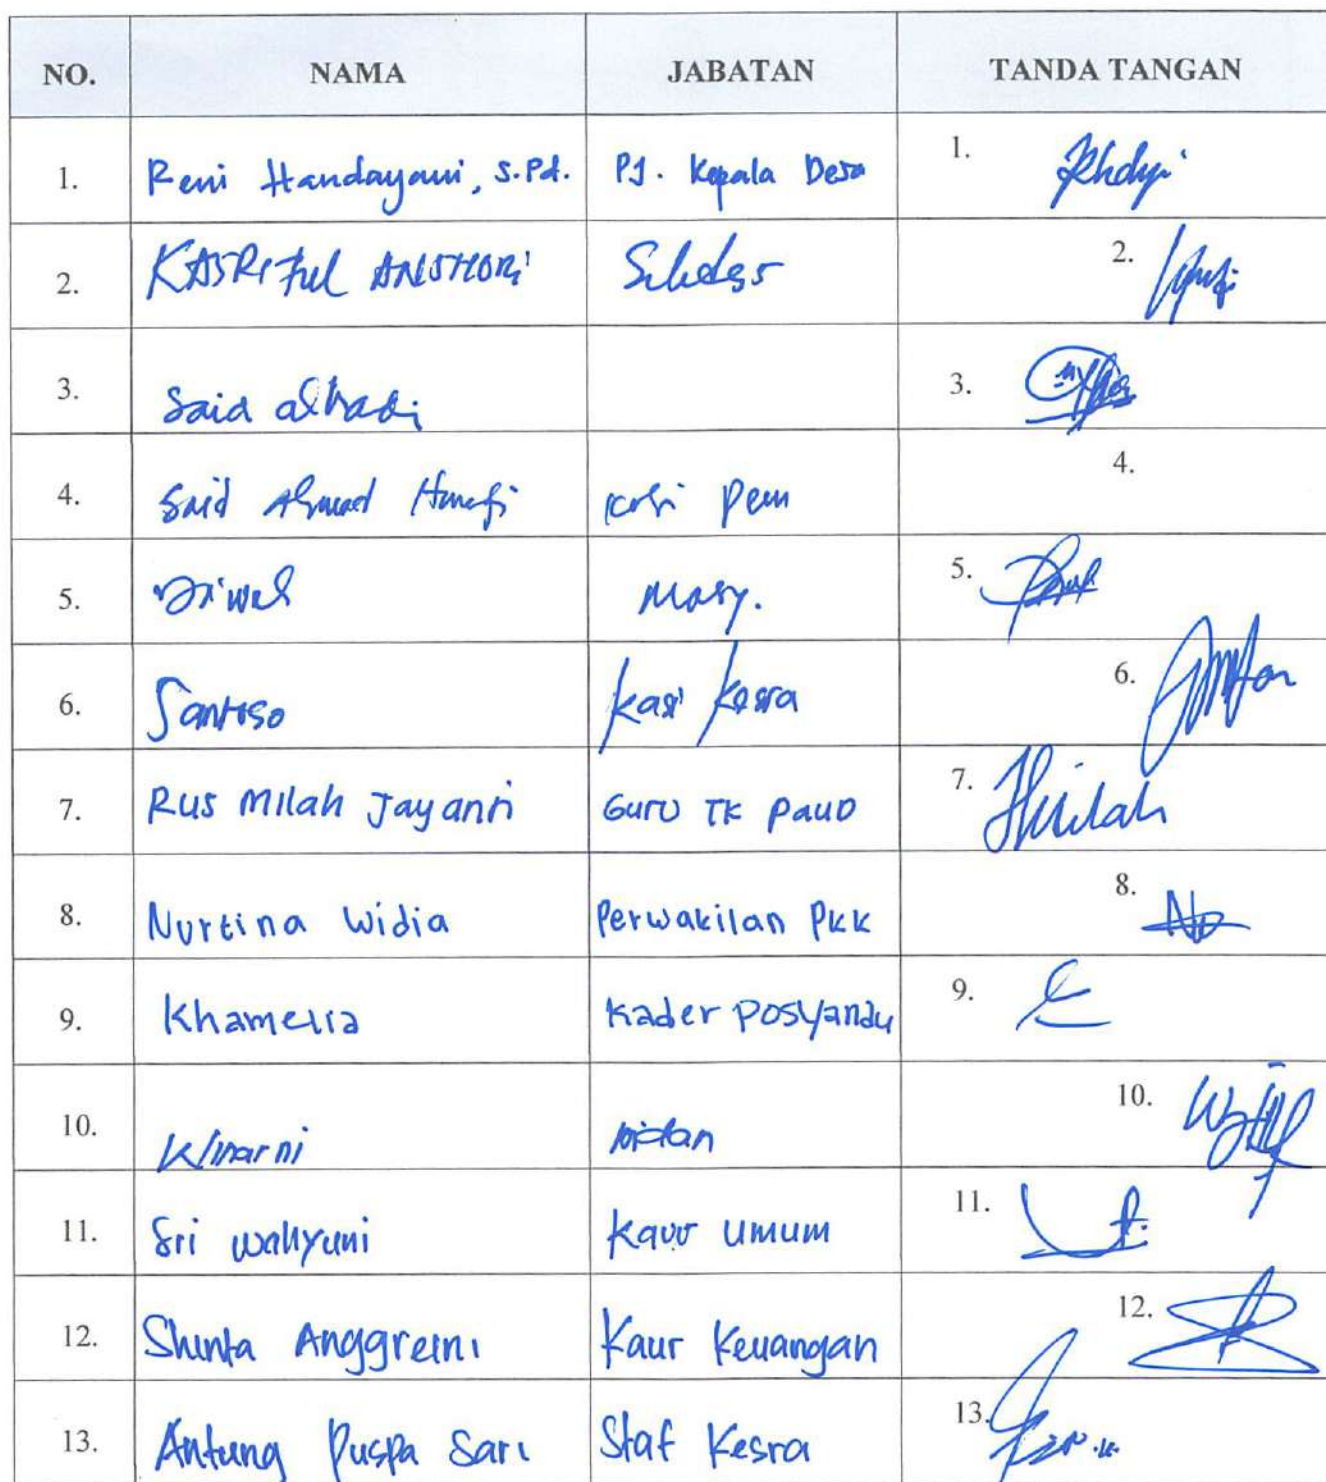 NO. NAMA JABATAN TANDA TANGAN
1. Reni Handayani, S.Pd. PJ. Kepala Desa 1.
2. KASRIFul ANSHORi Sekdes 2.
3. Said alhadi 3.
4. Said Ahmad Hanafi Kasi Pem 4.
5. Masy. 5.
6. Santoso Kasi Kesra 6.
7. Rus Milah Jayanti Guru TK PauD 7.
8. Nurtina Widia Perwakilan PKK 8.
9. Khamelia Kader Posyandu 9.
10. Winarni bidan 10.
11. Sri Wahyuni Kaur Umum 11.
12. Shinta Anggreini Kaur Keuangan 12.
13. Antung Puspa Sari Staf Kesra 13.